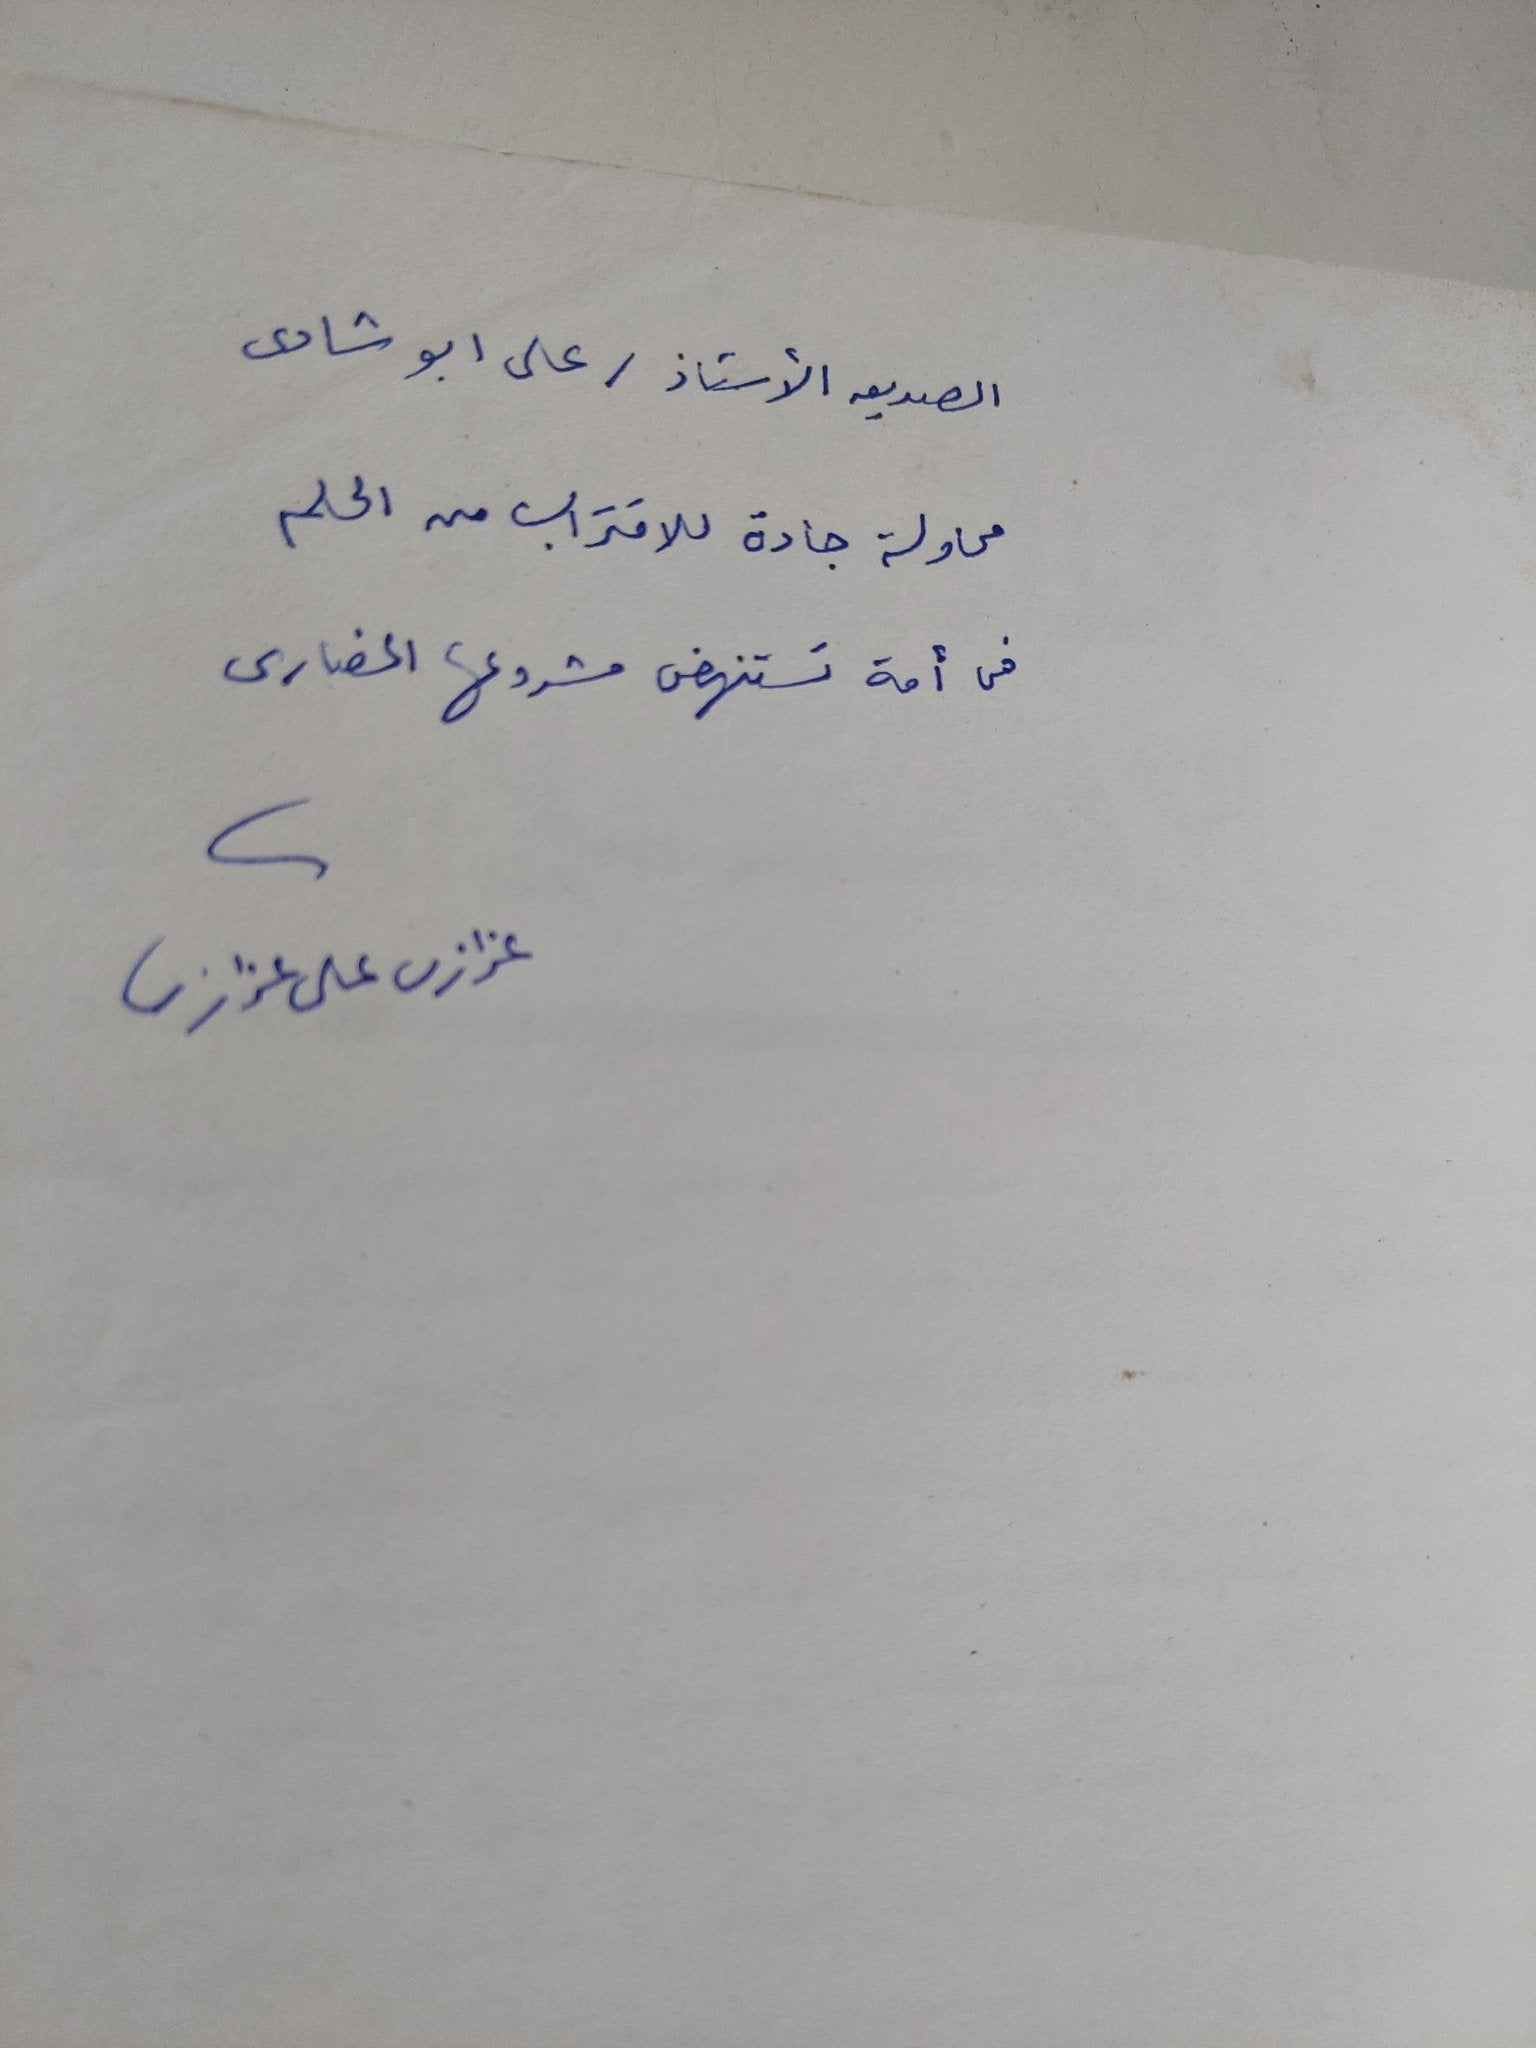 الصديق الأستاذ / على ابو شادى
محاولة جادة للاقتراب من الحلم
فى أمة تستنهض مشروعها الحضارى
عزازى على عزازى